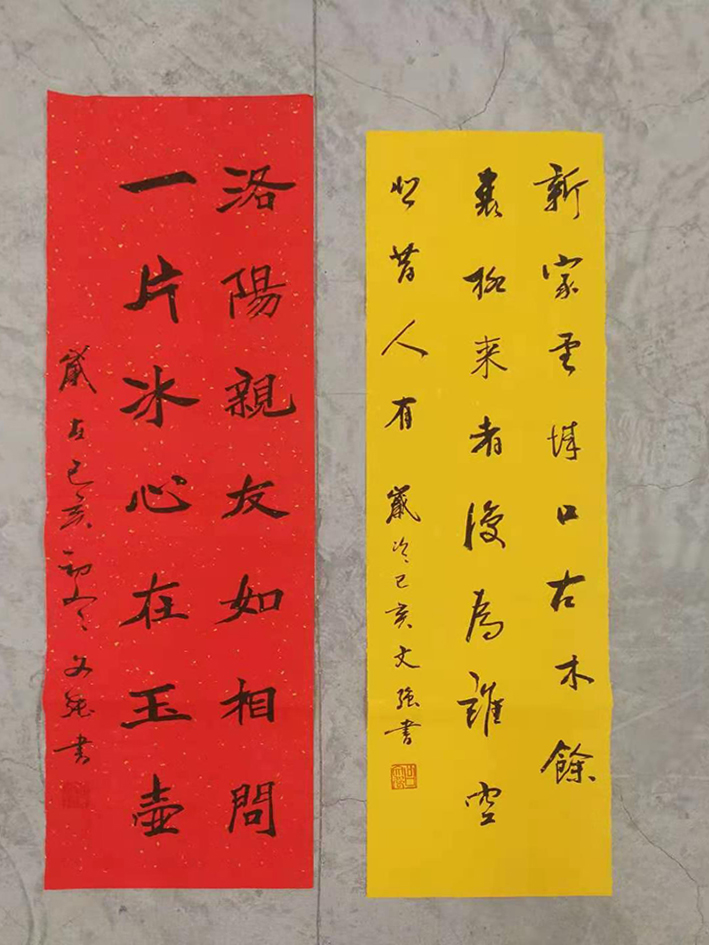 洛陽親友如相問
一片冰心在玉壺
歲在己亥初冬文強書
新家孟城口古木餘
衰柳来者復為誰空
悲昔人有 歲次己亥文強書